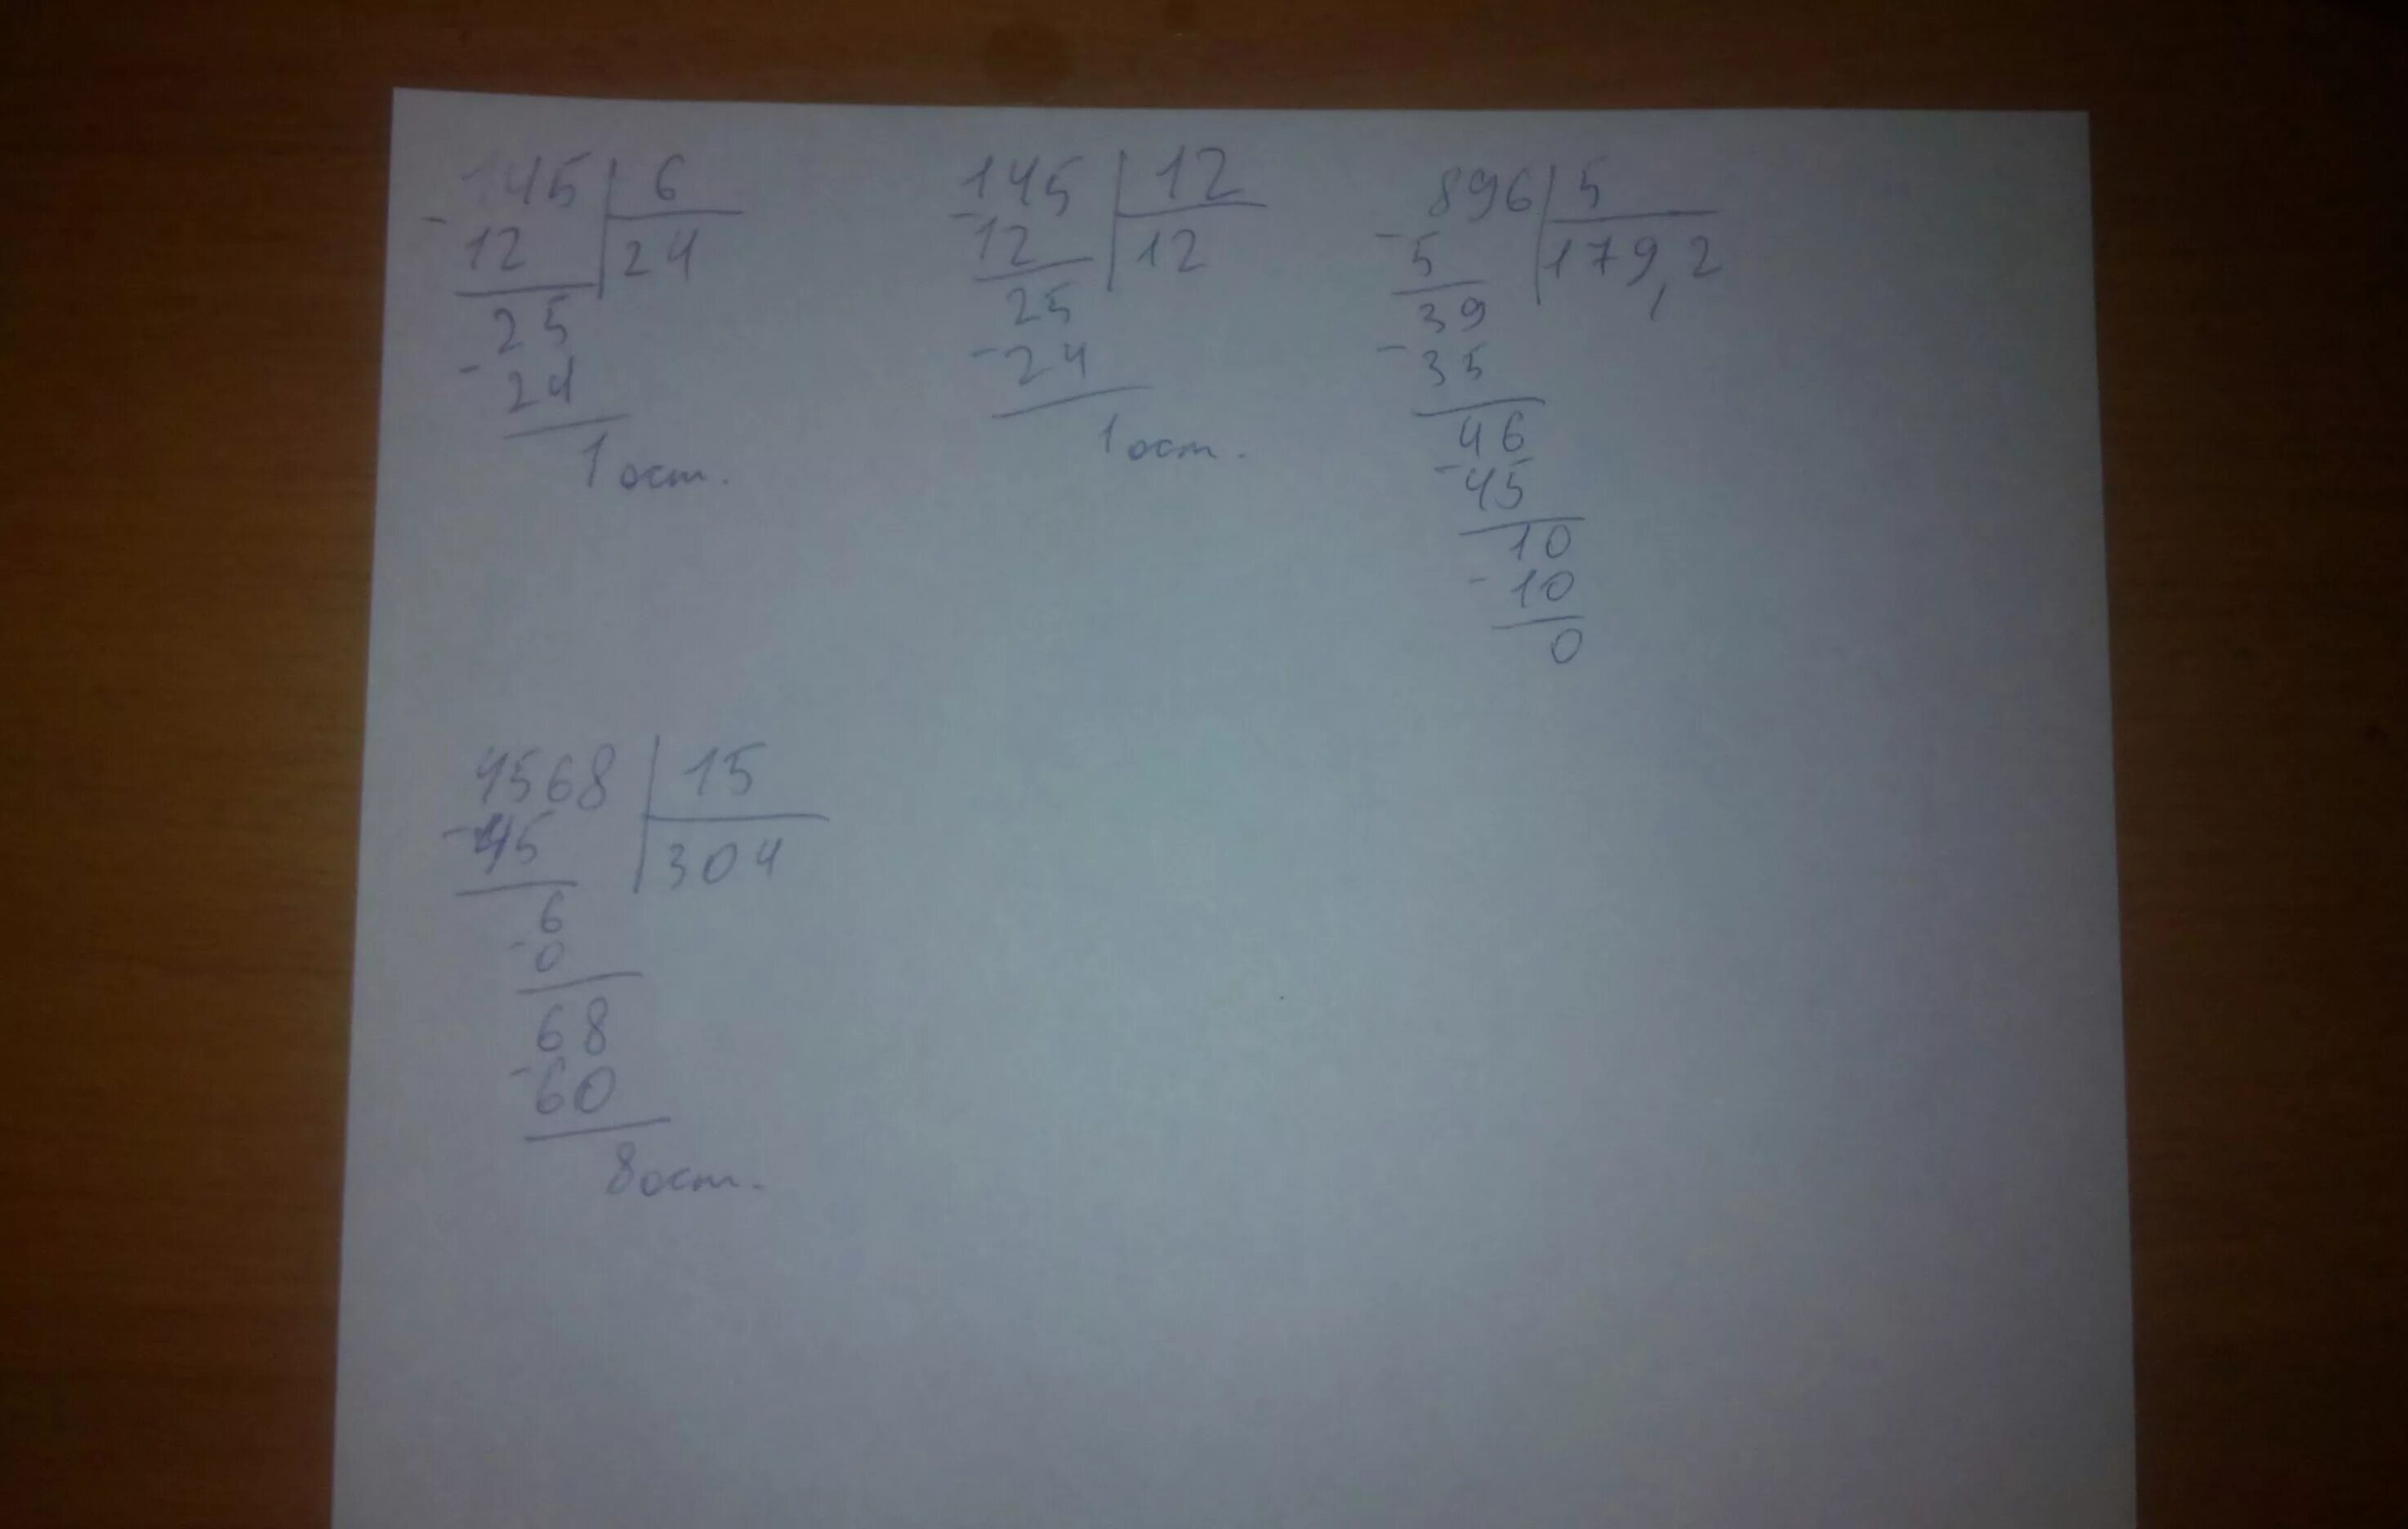 145 6
- 12 24
25
- 24
1 ост.
145 12
- 12 12
25
- 24
1 ост.
896 5
- 5 179,2
39
- 35
46
- 45
10
- 10
0
4568 15
- 45 304
6
- 0
68
- 60
8 ост.